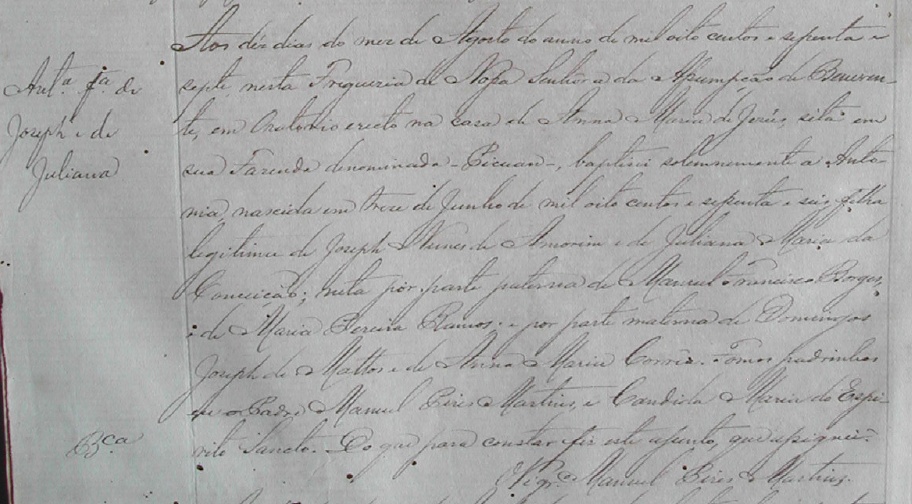 Aos déz dias do mez de Agosto do anno de mil oito centos e sepenta e
septe, nesta Freguezia de Nossa Senhora da Assumpção de Beneven-
te, em Oratorio erecto na casa de Anna Maria de Jesus, sita em
sua Fazenda denominada - Picuan -, baptizei solemnemente a Anto-
nia, nascida em treze de Junho de mil oito centos e sepenta e seis, filha
legitima de Joseph Nunes de Amorim e de Juliana Maria da
Conceicão; neta por parte paterna de Manuel Francisco Borges,
e de Maria Pereira Ramos; e por parte materna de Domingos
Joseph de Mattos e de Anna Maria Corrêa. padrinhos
o Padre Manuel Pires Martins, e Candida Maria do Espi-
rito Sancto. Do que para constar fiz este assento, que assignei.
O Vigr.º Manuel Pires Martins.
Ant.ª f.ª de
Joseph e de
Juliana
B.ca